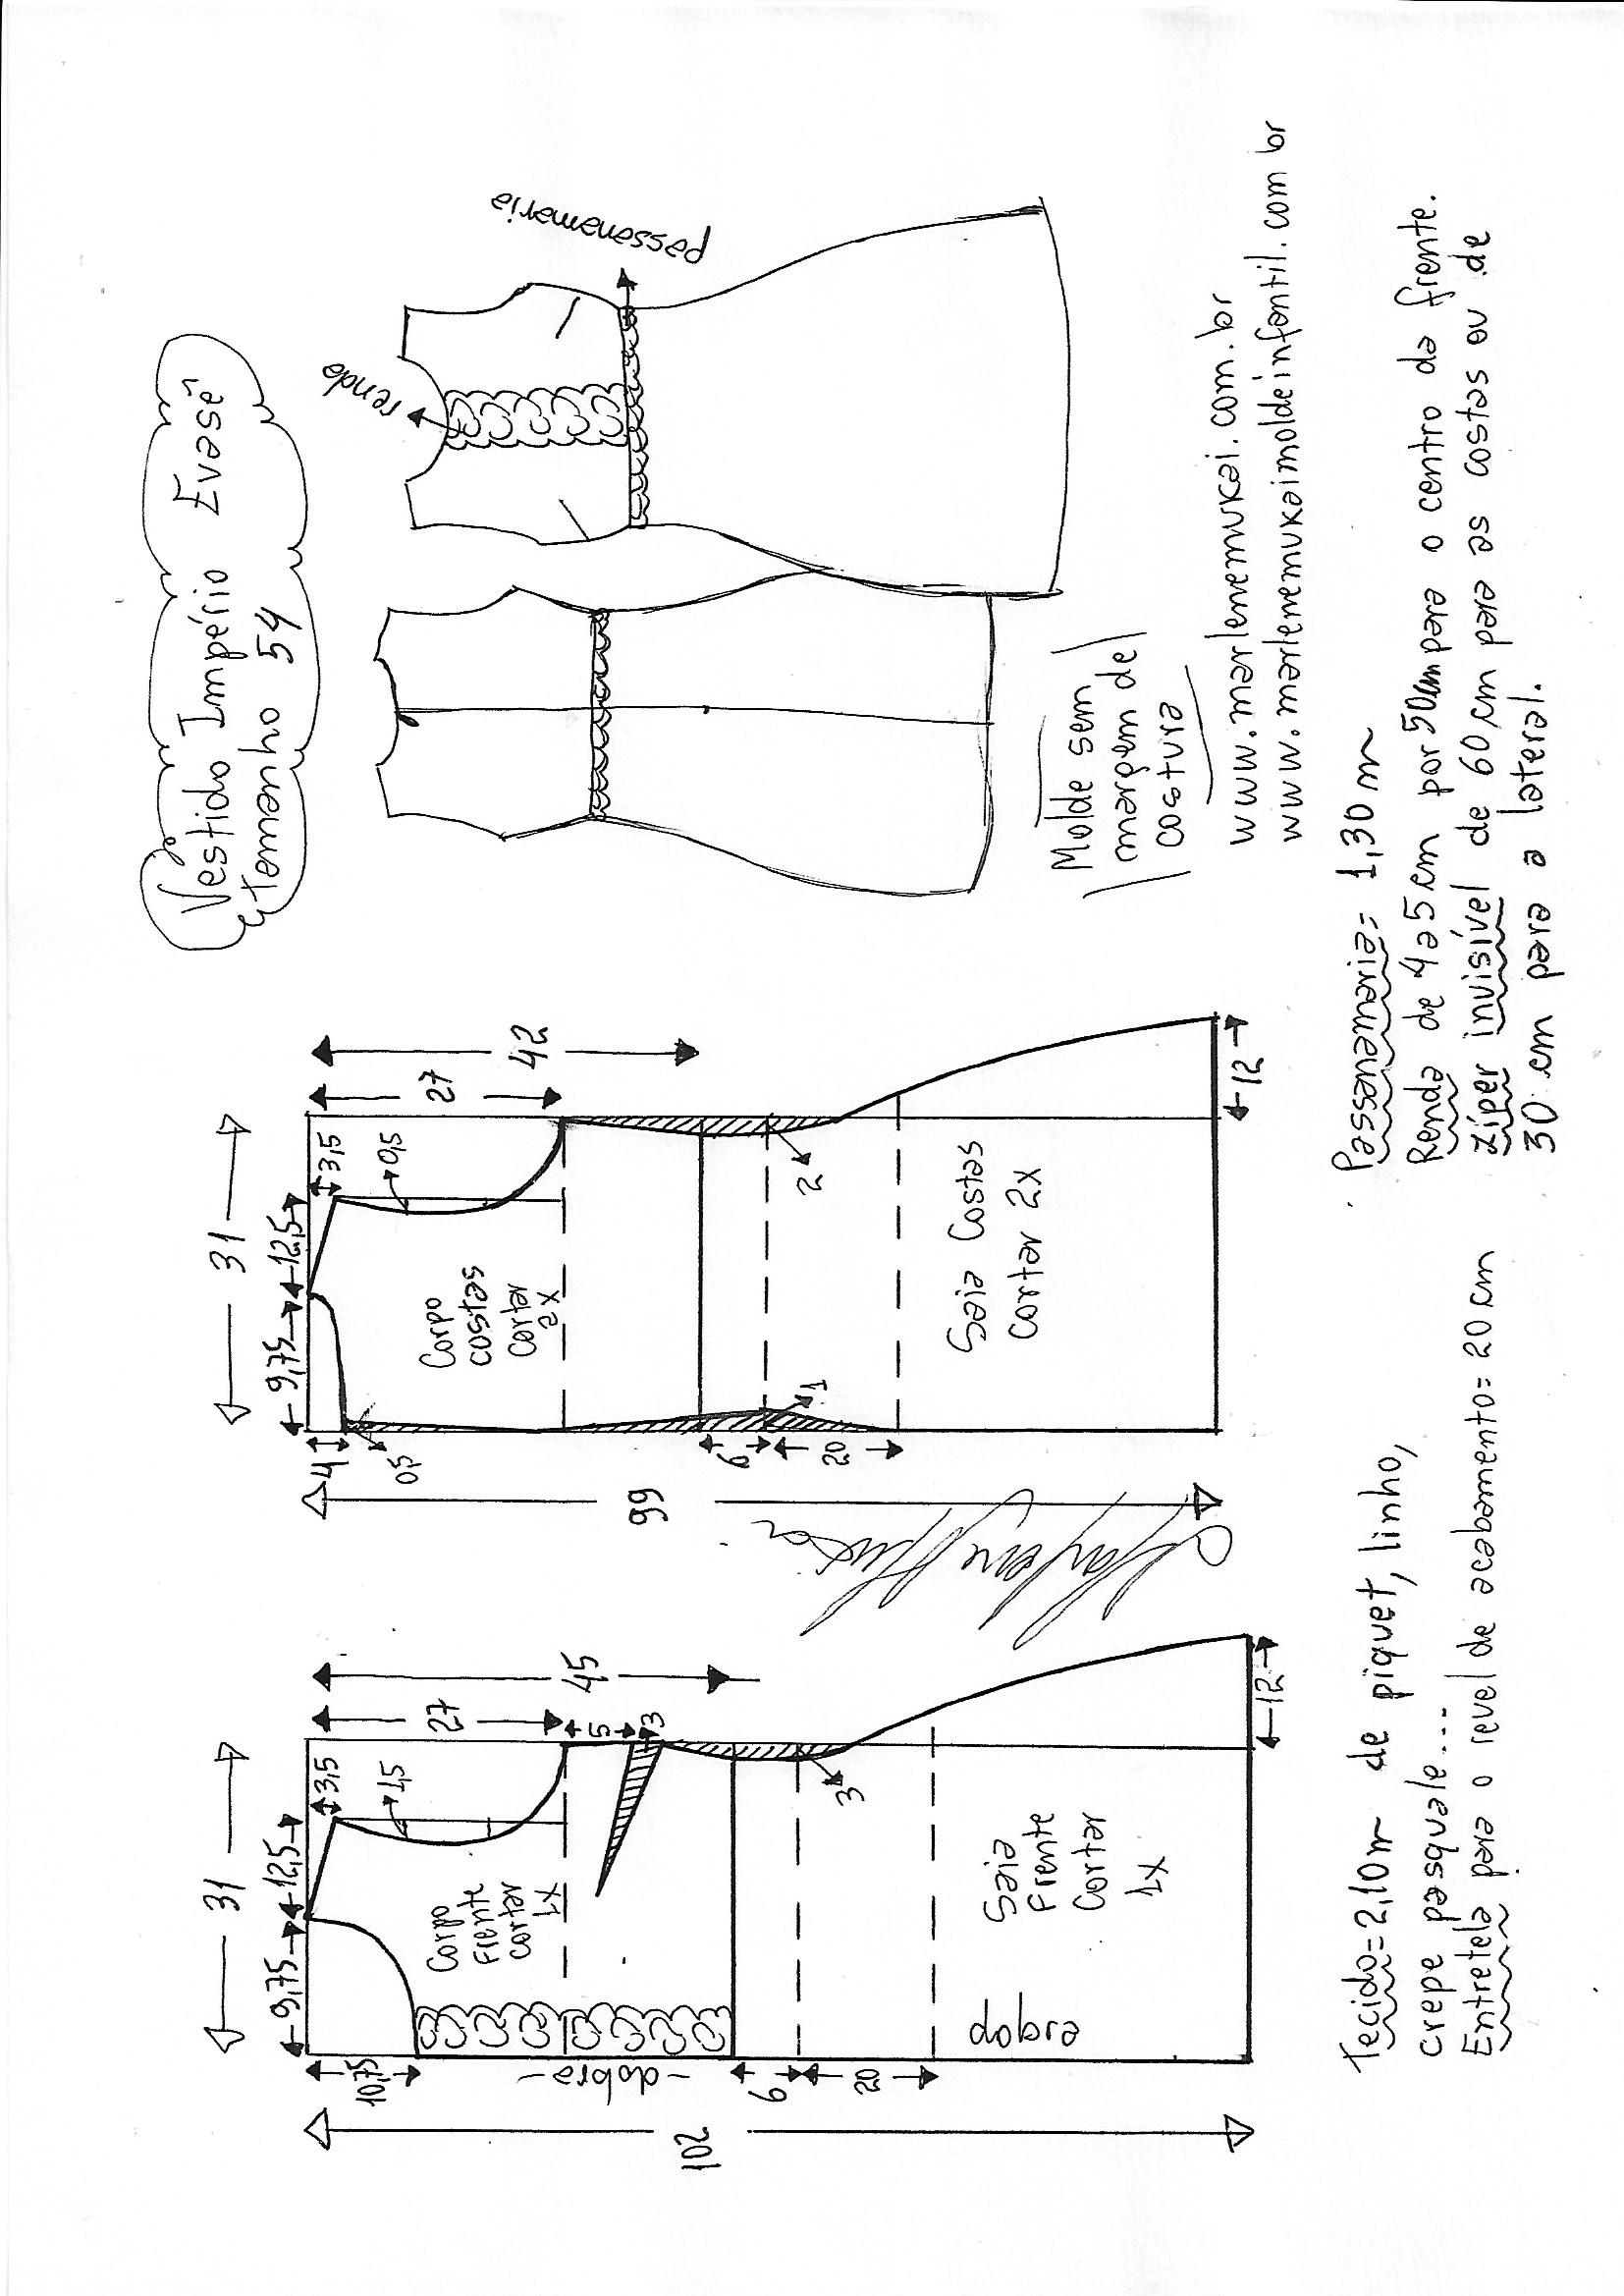 Vestido Império Evasê
tamanho 54
renda
passanamaria
Molde sem
margem de
costura
www.marlenemukai.com.br
www.marlenemukaimoldeinfantil.com br
31
9,75
12,5
3,5
10,75
1,5
27
45
5
3
Corpo
Frente
Cortar
1x
-dobra-
102
6
20
3
dobra
Saia
Frente
Cortar
1x
12
31
9,75
12,5
3,5
4
0,5
0,5
27
42
Corpo
costas
Cortar
2x
99
6
20
1
2
Saia Costas
Cortar 2x
12
Marlene Mukai
Tecido=2,10m de piquet, linho,
crepe pasquale....
Entretela para o revel de acabamento=20cm
Passanamaria= 1,30m
Renda de 4 a 5cm por 50cm para o centro da frente.
Zíper invisível de 60cm para as costas ou de
30 cm para a lateral.